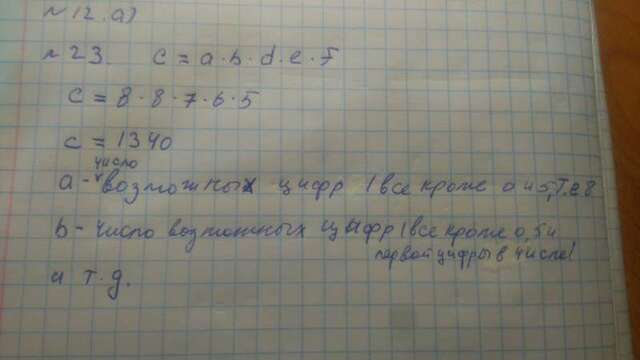 №12.а)
№23. c = a·b·d·e·f
c = 8·8·7·6·5
c = 1340
число
a - возможных цифр (все кроме 0 и 5, т.е 8
b - число возможных цифр (все кроме 0, 5 и
первой цифры в числе)
и т.д.